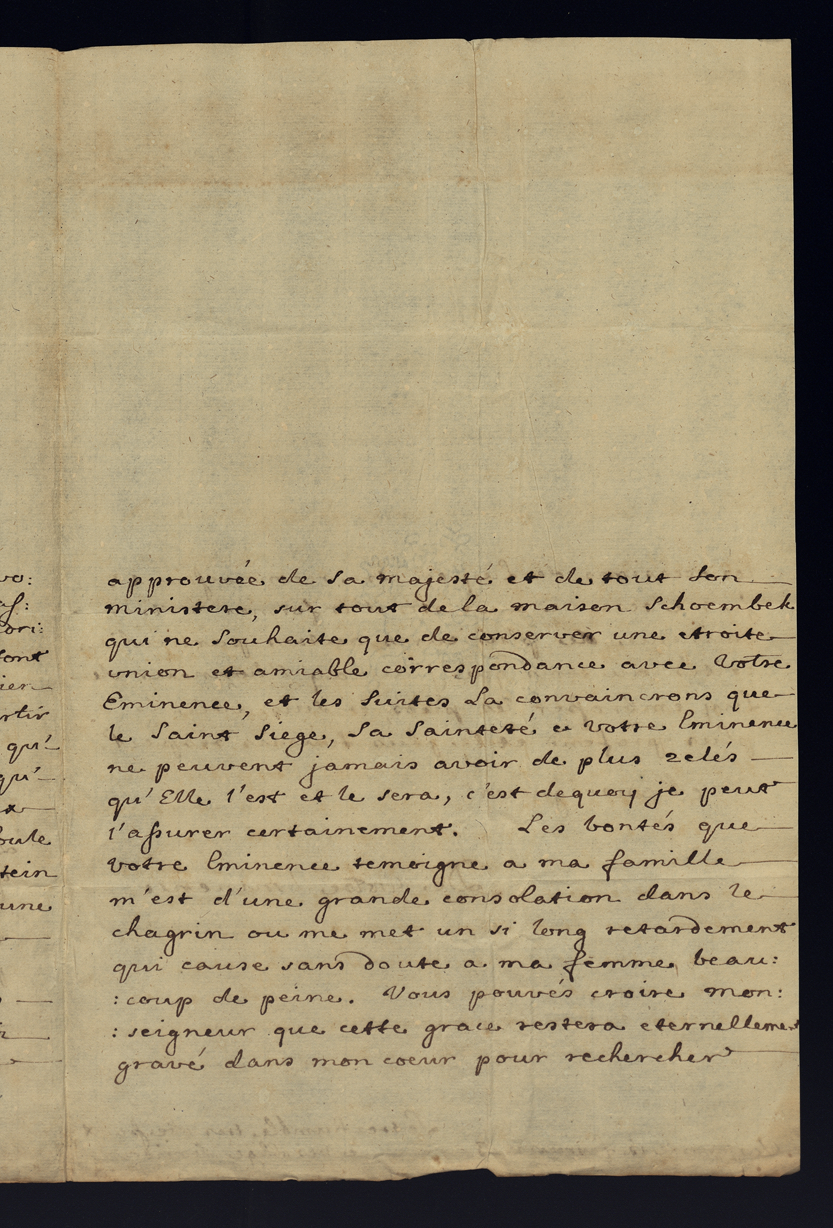 vo:
ori:
font
ien
rtir
qu'
qu'
oule
tein
une
approuvée de sa majesté et de tout son
ministere, sur tout de la maison Schoembek
qui ne souhaite que de conserver une etroite
union et amiable correspondance avec Votre
Eminence, et les suites La convaincrons que
le Saint Siege, Sa Sainteté e Votre Eminence
ne peuvent jamais avoir de plus zelés
qu'Elle l'est et le sera, c'est dequoy je peut
l'assurer certainement. Les bontés que
Votre Eminence temoigne a ma famille
m'est d'une grande consolation dans le
chagrin ou me met un si long retardement
qui cause sans doute a ma femme beau:
:coup de peine. Vous pouvés croire mon:
:seigneur que cette grace restera eternellement
gravé dans mon coeur pour rechercher